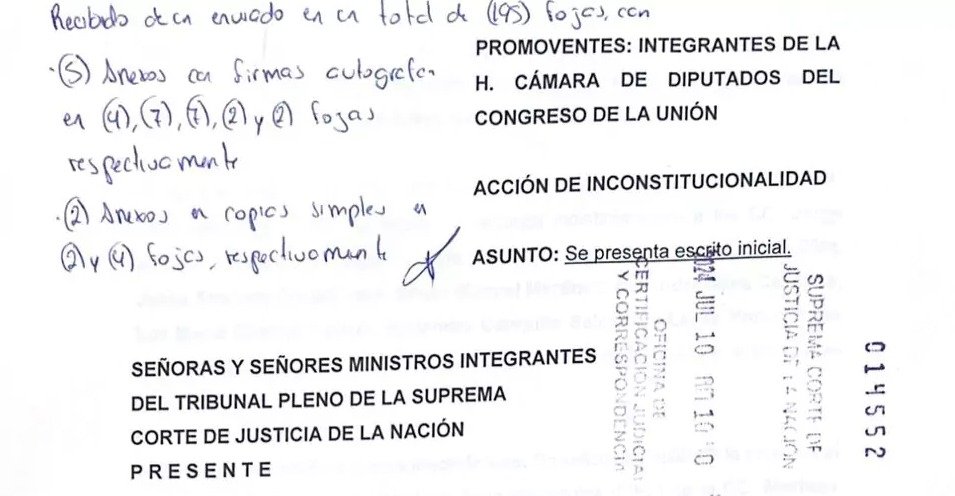 Recibido de un enviado en un total de (195) fojas, con
·(5) Anexos con firmas autógrafas
en (4), (7), (7), (2) y (2) fojas
respectivamente
·(2) Anexos en copias simples en
(2) y (4) fojas, respectivamente
PROMOVENTES: INTEGRANTES DE LA
H. CÁMARA DE DIPUTADOS DEL
CONGRESO DE LA UNIÓN
ACCIÓN DE INCONSTITUCIONALIDAD
ASUNTO: Se presenta escrito inicial.
SEÑORAS Y SEÑORES MINISTROS INTEGRANTES
DEL TRIBUNAL PLENO DE LA SUPREMA
CORTE DE JUSTICIA DE LA NACIÓN
P R E S E N T E
SUPREMA CORTE DE
JUSTICIA DE LA NACIÓN
JUL 10 AM 10
OFICINA DE
CERTIFICACIÓN JUDICIAL
Y CORRESPONDENCIA
014552